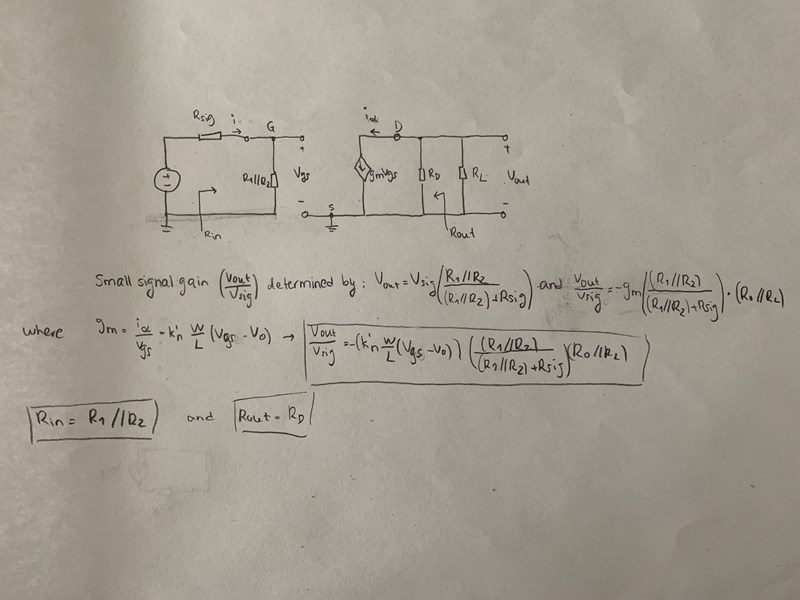 Rsig i G id D
+ +
R1//R2 Vgs gmVgs RD RL Vout
- S -
Rin Rout
Small signal gain (Vout/Vsig) determined by: Vout = Vsig (R1//R2/(R1//R2)+Rsig) and Vout/Vsig = -gm((R1//R2)/(R1//R2)+Rsig) · (RD//RL)
where gm = id/vgs = k'n W/L (VGS - V0) → Vout/Vsig = -(k'n W/L (VGS - V0)) ((R1//R2)/(R1//R2)+Rsig)(RD//RL)
Rin = R1//R2 and Rout = RD